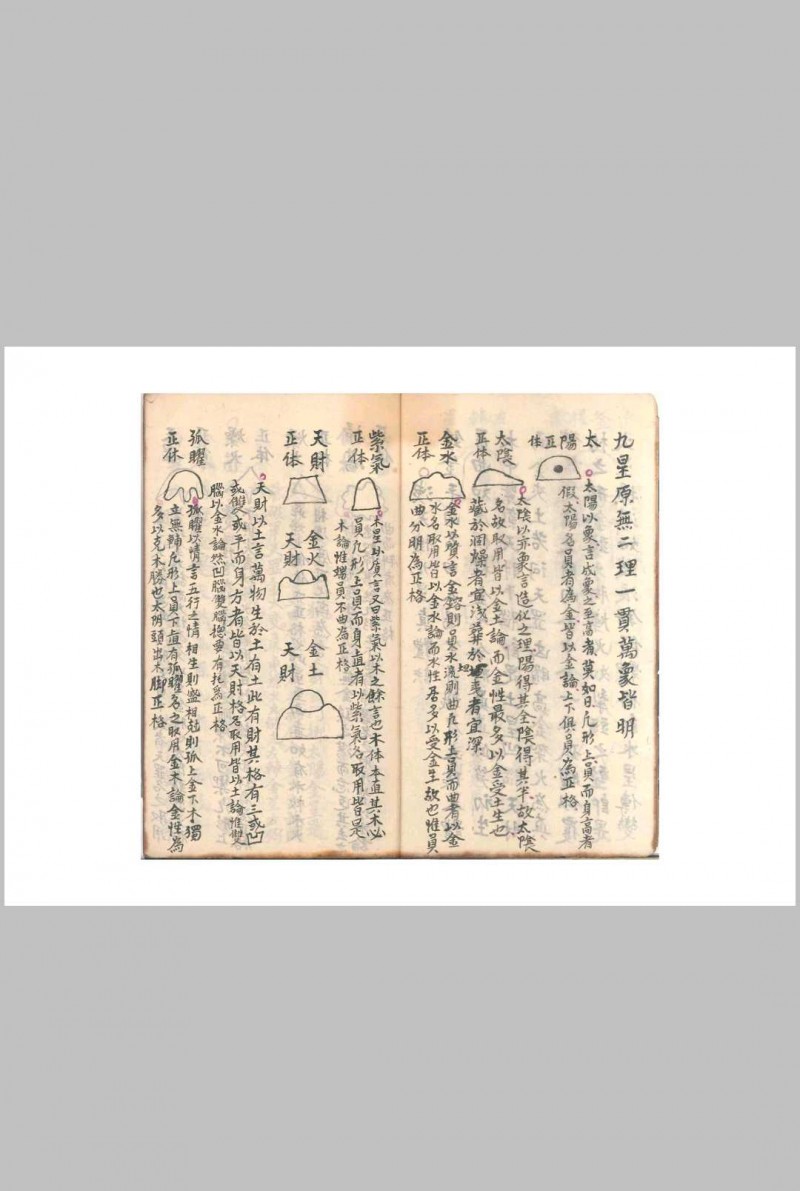 九星原無二理一貫萬象皆明
太陽正体
太陽以象言成象之至高者莫如日凡形上員而身高者
假太陽名員者為金皆以金論上下俱員為正格
太陰正体
太陰以亦象言造化之理陽得其全陰得其半故太陰
名故取用皆以金土論而金性最多以金受土生也
葬於润燥者宜浅葬於坦夷者宜深
金水正体
金水以質言金鎔則員水流則曲凡形上員而曲者以金
水名取用皆以金水論而水性居多以受金生故也惟員
曲分明為正格
紫氣正体
木星以質言又曰紫氣以木之餘言也木体本直其木必
員凡形上員而身直者以紫氣名取用皆是
木論惟端員不曲為正格
天財正体
金火天財
金土天財
天財以土言萬物生於土有土此有財其格有三或凹
或雙或平而身方者皆以天財格名取用皆以土論惟雙
腦以金水論然凹腦雙腦揔要有托為正格
孤曜正体
孤曜以情言五行之情相生則盛相剋則孤上金下木獨
立無輔凡形上員下直有孤曜名之取用金木論金性為
多以克木勝也太阴頭出木脚正格